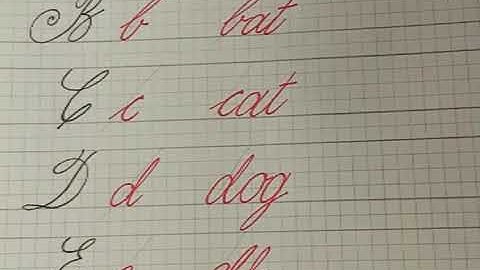 B b bat
C c cat
D d dog
E